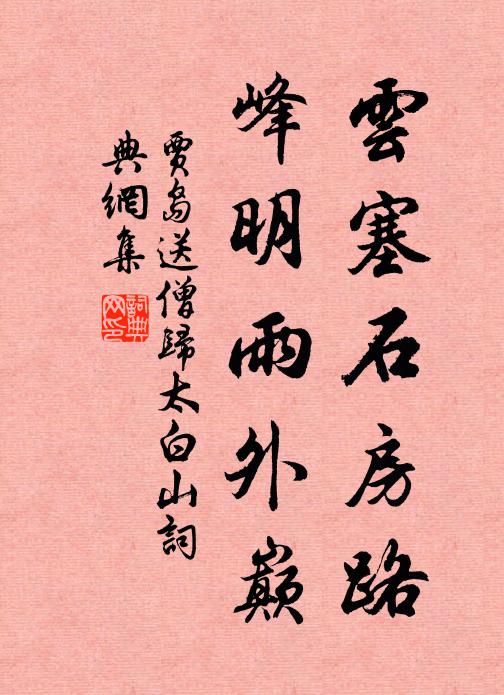 雲塞石房路
峰明雨外巔
賈島送僧歸太白山詞
典網集
詞典網印